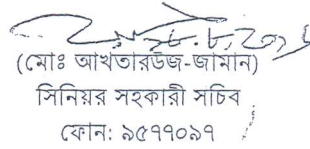 (মোঃ আখতারউজ-জামান)
সিনিয়র সহকারী সচিব
ফোন: ৯৫৭৭০৯৭